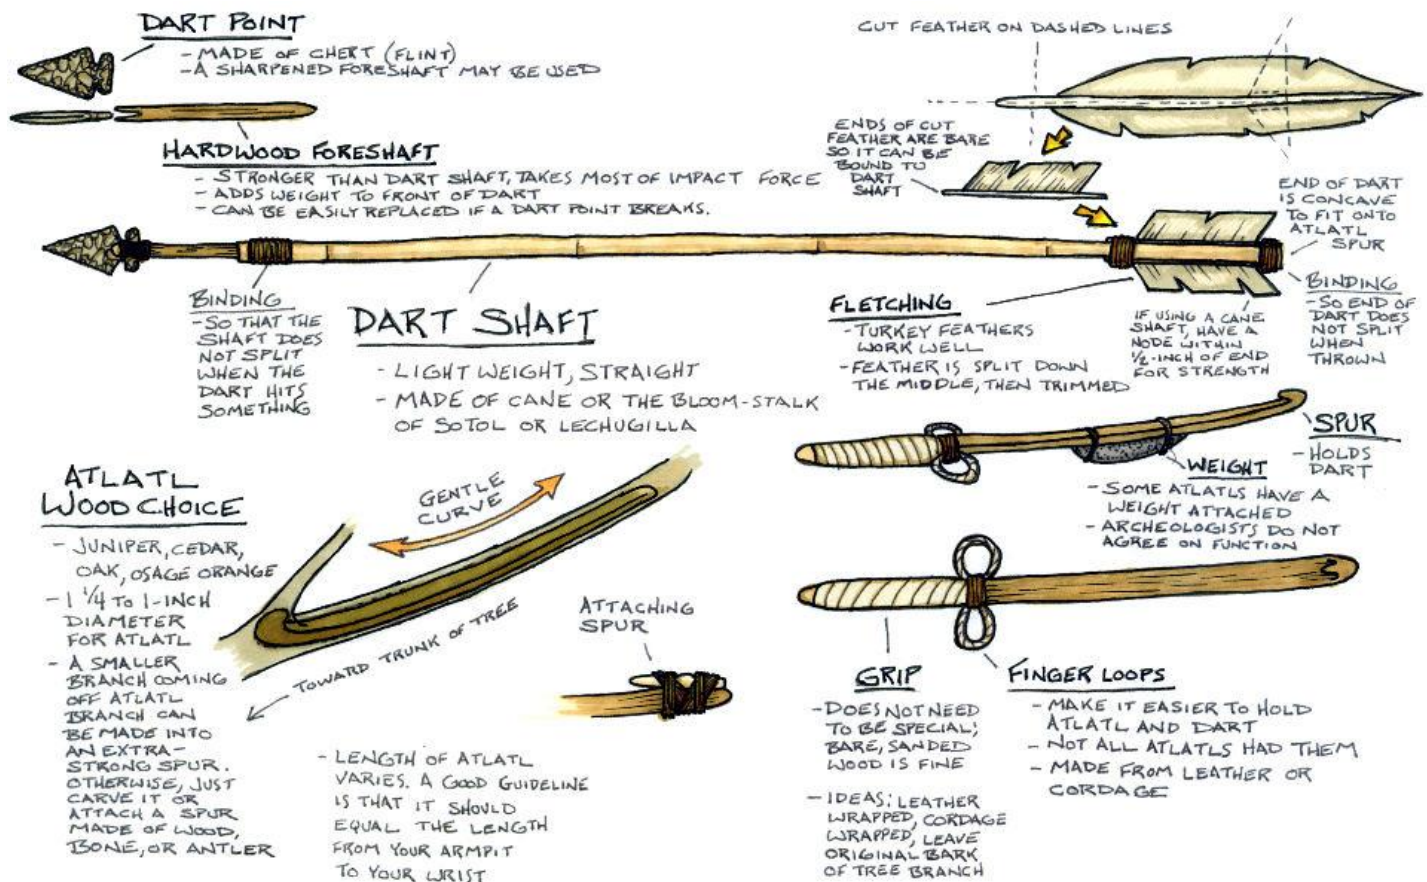 DART POINT
- MADE OF CHERT (FLINT)
- A SHARPENED FORESHAFT MAY BE USED
HARDWOOD FORESHAFT
- STRONGER THAN DART SHAFT, TAKES MOST OF IMPACT FORCE
- ADDS WEIGHT TO FRONT OF DART
- CAN BE EASILY REPLACED IF A DART POINT BREAKS.
CUT FEATHER ON DASHED LINES
ENDS OF CUT
FEATHER ARE BARE
SO IT CAN BE
BOUND TO
DART
SHAFT
END OF DART
IS CONCAVE
TO FIT ONTO
ATLATL
SPUR
BINDING
- SO THAT THE
SHAFT DOES
NOT SPLIT
WHEN THE
DART HITS
SOMETHING
DART SHAFT
- LIGHT WEIGHT, STRAIGHT
- MADE OF CANE OR THE BLOOM-STALK
OF SOTOL OR LECHUGILLA
FLETCHING
- TURKEY FEATHERS
WORK WELL
- FEATHER IS SPLIT DOWN
THE MIDDLE, THEN TRIMMED
IF USING A CANE
SHAFT, HAVE A
NODE WITHIN
1/2-INCH OF END
FOR STRENGTH
BINDING
- SO END OF
DART DOES
NOT SPLIT
WHEN
THROWN
ATLATL
WOOD CHOICE
- JUNIPER, CEDAR,
OAK, OSAGE ORANGE
- 1 1/4 TO 1-INCH
DIAMETER
FOR ATLATL
- A SMALLER
BRANCH COMING
OFF ATLATL
BRANCH CAN
BE MADE INTO
AN EXTRA-
STRONG SPUR.
OTHERWISE, JUST
CARVE IT OR
ATTACH A SPUR
MADE OF WOOD,
BONE, OR ANTLER
GENTLE
CURVE
TOWARD TRUNK OF TREE
ATTACHING
SPUR
- LENGTH OF ATLATL
VARIES. A GOOD GUIDELINE
IS THAT IT SHOULD
EQUAL THE LENGTH
FROM YOUR ARMPIT
TO YOUR WRIST
SPUR
- HOLDS
DART
WEIGHT
- SOME ATLATLS HAVE A
WEIGHT ATTACHED
- ARCHEOLOGISTS DO NOT
AGREE ON FUNCTION
GRIP
- DOES NOT NEED
TO BE SPECIAL;
BARE, SANDED
WOOD IS FINE
- IDEAS: LEATHER
WRAPPED, CORDAGE
WRAPPED, LEAVE
ORIGINAL BARK
OF TREE BRANCH
FINGER LOOPS
- MAKE IT EASIER TO HOLD
ATLATL AND DART
- NOT ALL ATLATLS HAD THEM
- MADE FROM LEATHER OR
CORDAGE